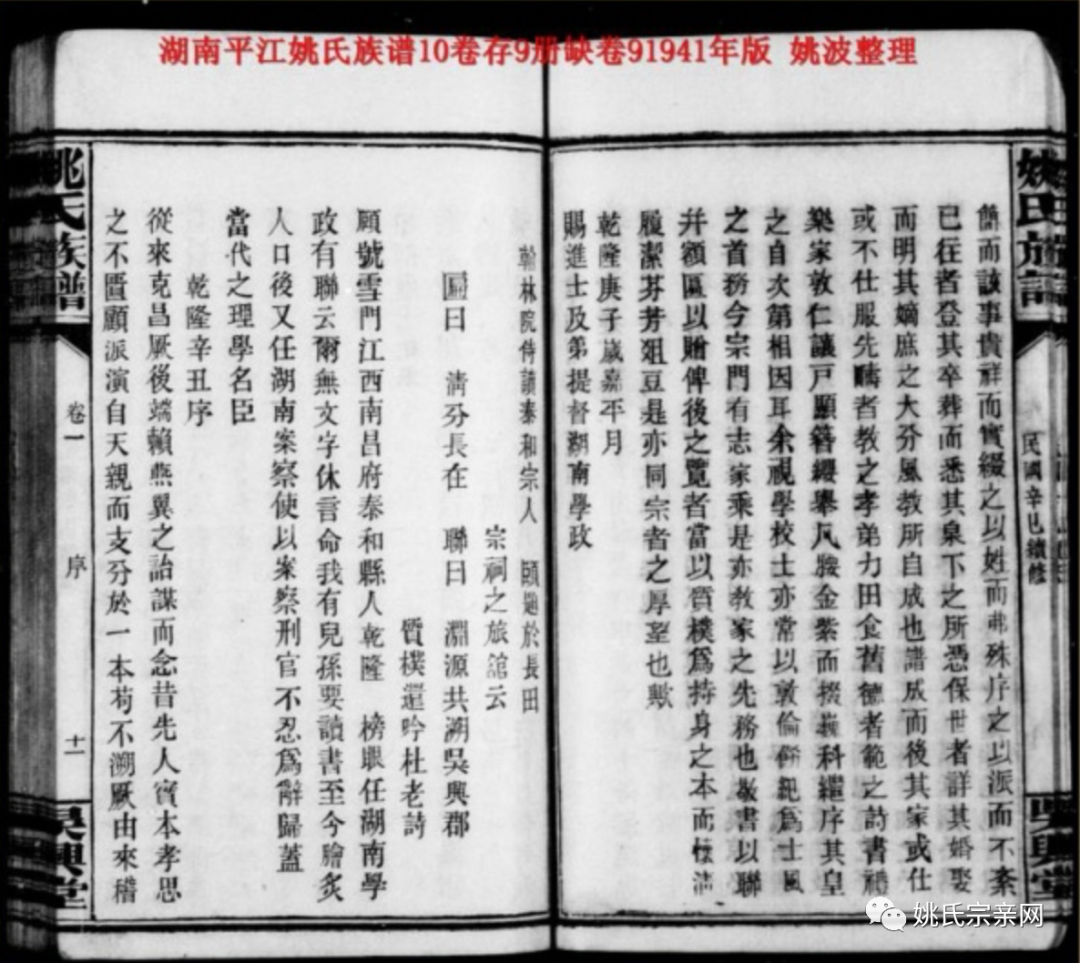 湖南平江姚氏族谱10卷存9册缺卷91941年版 姚波整理
姚氏族譜
民國辛巳續修
吳興堂
簡而該事貴祥而實綴之以姓而弗殊序之以派而不紊
已往者登其卒葬而悉其泉下之所憑保世者詳其婚娶
而明其嫡庶之大分風教所自成也譜成而後其家或仕
或不仕服先疇者教之孝弟力田食舊德者範之詩書禮
樂家敦仁讓戸顯簪纓舉凡金紫而掇巍科繼序其皇
之自次第相因耳余視學校士亦常以敦倫範為士風
之首務今宗門有志家乘是亦教家之先務也敬書以聯
并額匾以贈俾後之覽者當以質樸爲持身之本而清
履潔芬芳俎豆是亦同宗者之厚望也歟
乾隆庚子歲嘉平月
賜進士及第提督湖南學政
翰林院侍讀泰和宗人 頤題於長田
宗祠之旅舘云
匾曰 清芬長在 聯曰 淵源共溯吳興郡
質樸還吟杜老詩
頤號雪門江西南昌府泰和縣人乾隆 榜眼任湖南學
政有聯云爾無文字休言命我有兒孫要讀書至今膾炙
人口後又任湖南案察使以案察刑官不忍爲辭歸蓋
當代之理學名臣
乾隆辛丑序
從來克昌厥後端賴燕翼之詒謀而念昔先人實本孝思
之不匱顧派演自天親而支分於一本苟不溯厥由來稽
姚氏族譜
卷一
序
十一
吳興堂
姚氏宗亲网